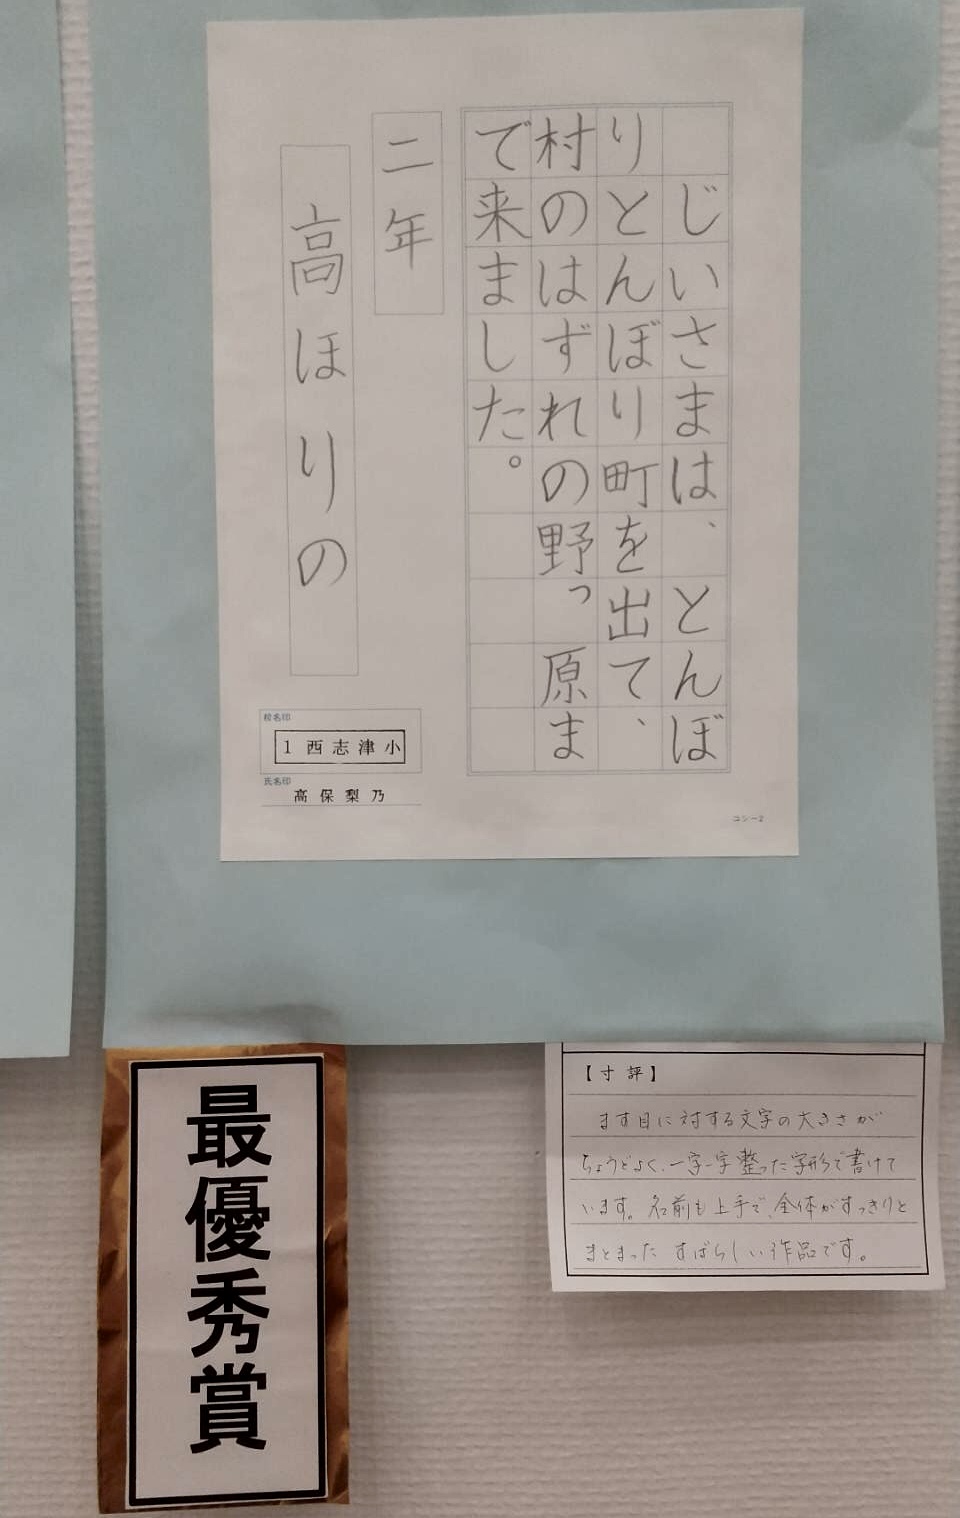 じいさまは、とんぼ
りとんぼり町を出て、
村のはずれの野っ原ま
で来ました。
二年
高ほりの
校名印
1西志津小
氏名印
高保梨乃
コシー2
最優秀賞
【寸評】
ます目に対する文字の大きさが
ちょうどよく、一字一字整った字形で書けて
います。名前も上手で、全体がすっきりと
まとまったすばらしい作品です。